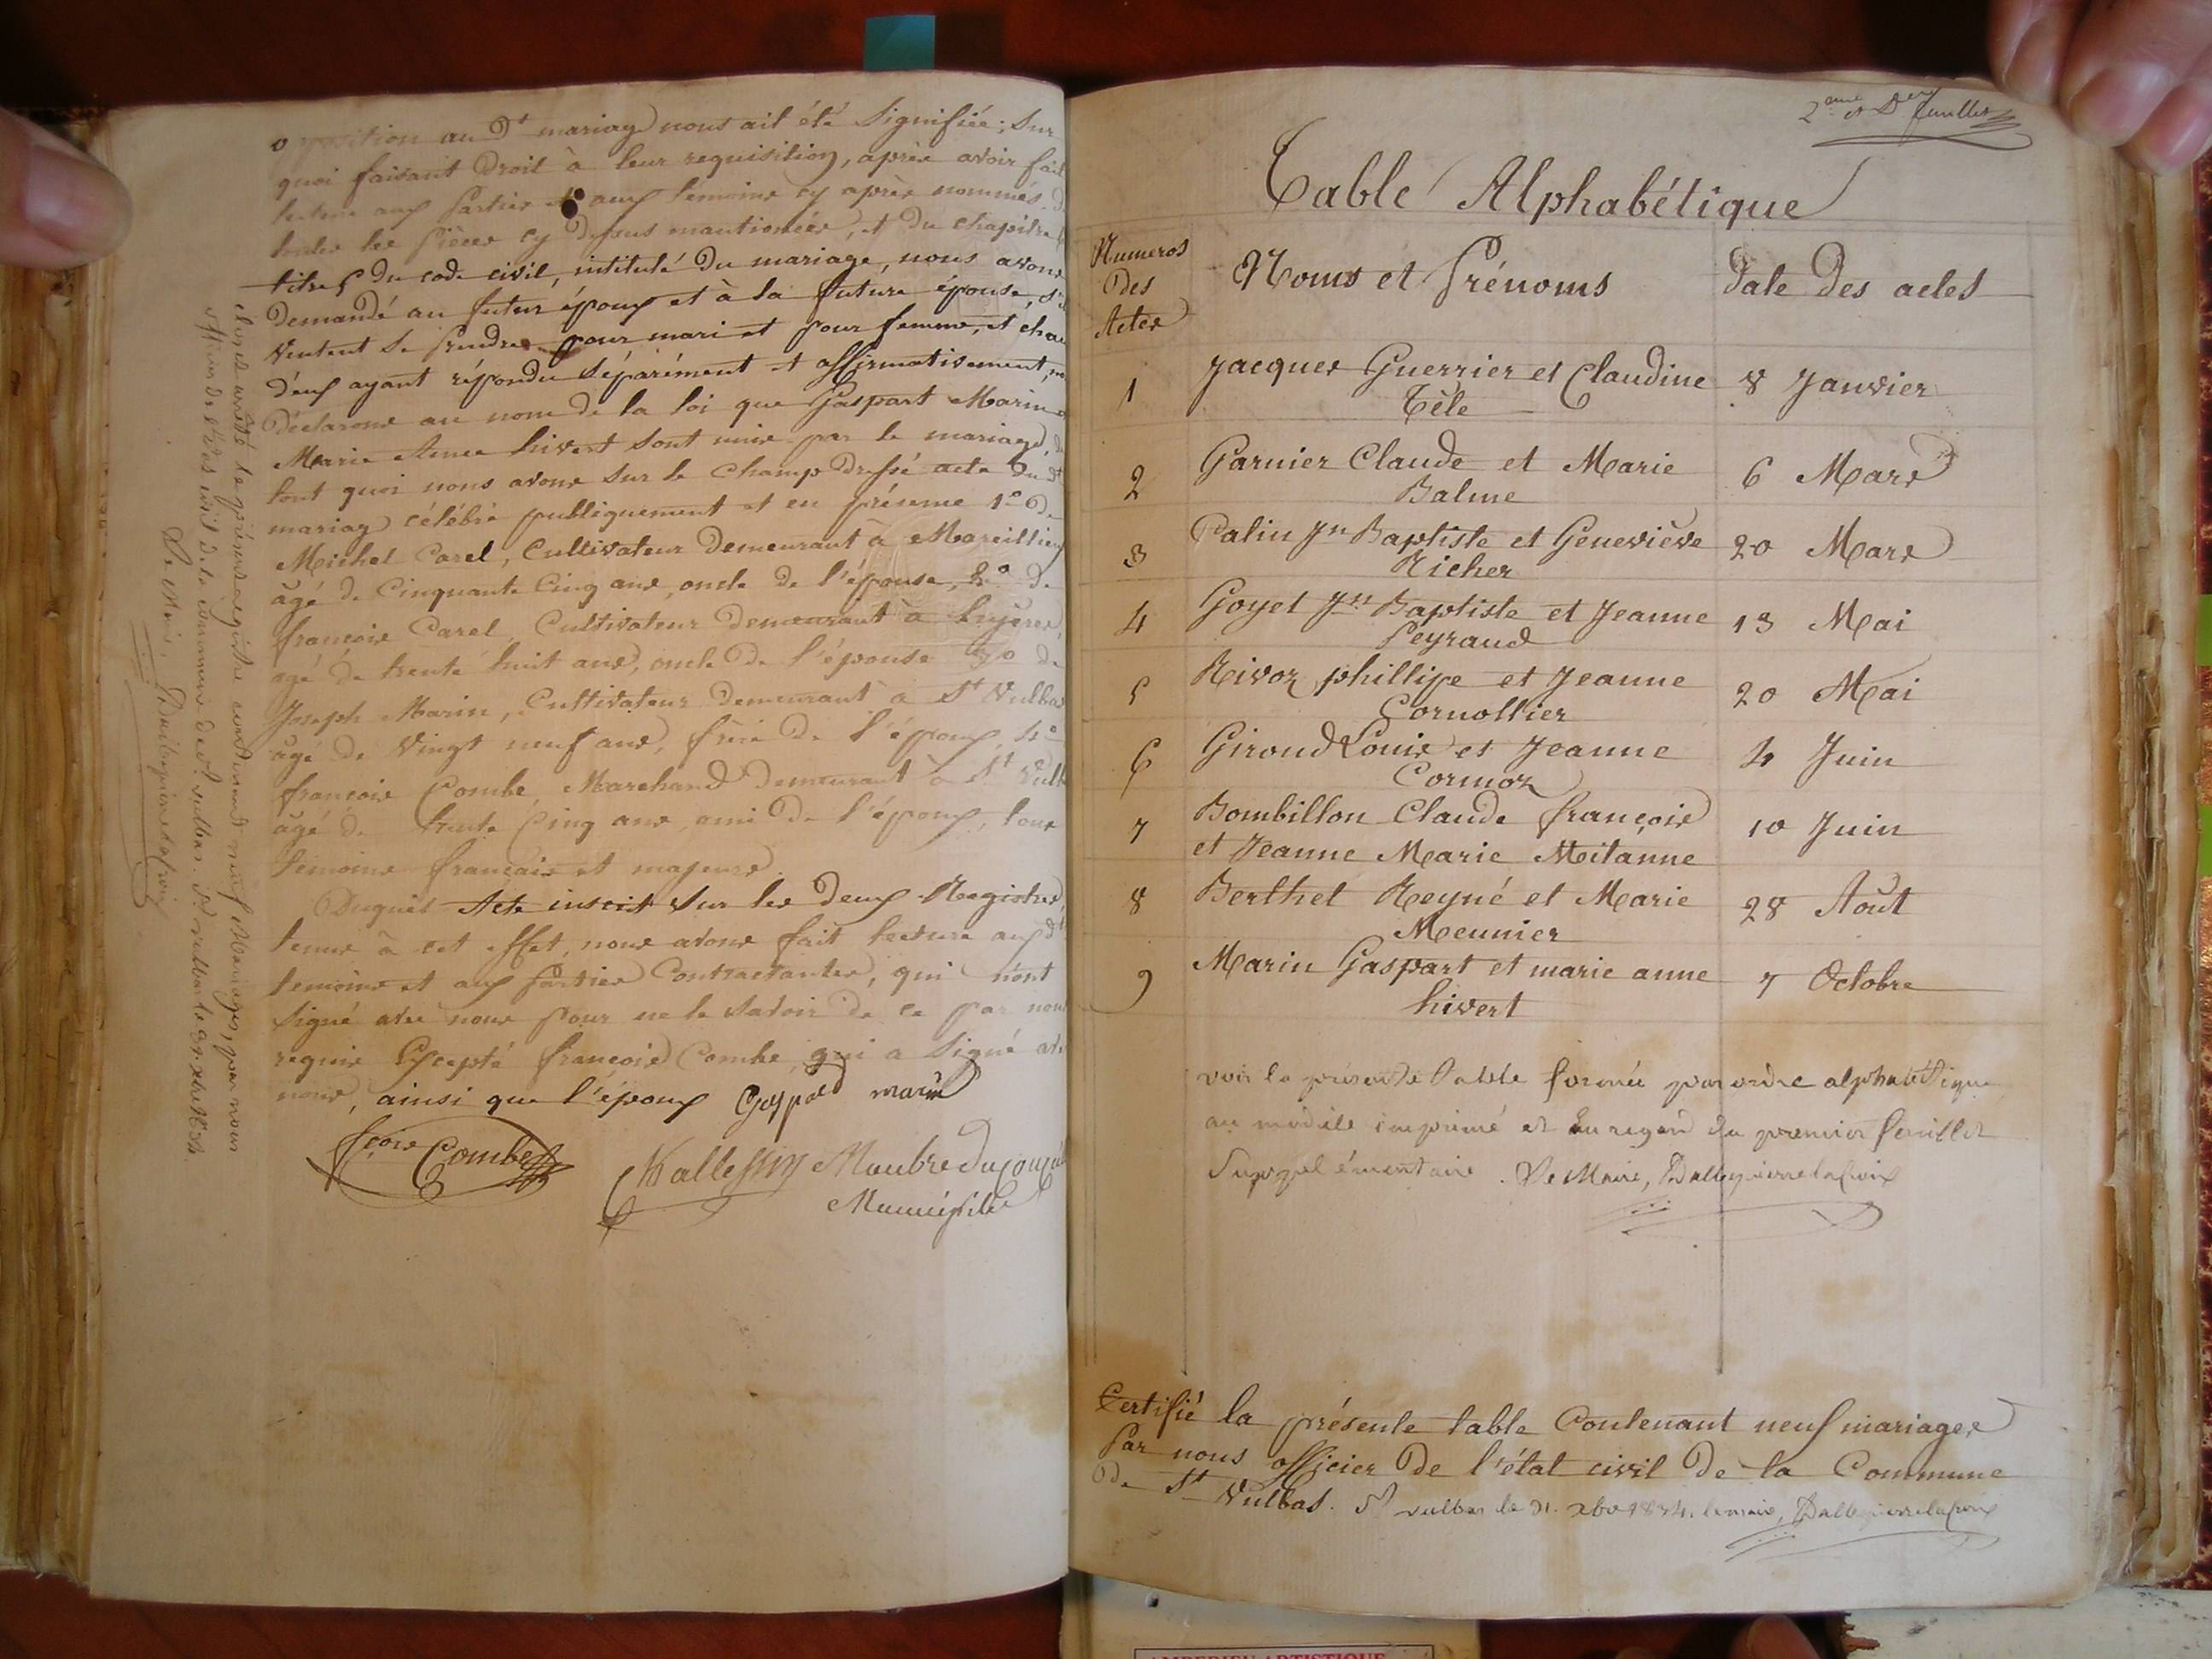 opposition au Dt mariage nous ait été Signifiée; Sur
quoi faisant Droit à leur requisition, après avoir fait
lecture aux Parties et aux témoins cy après nommés, d
toutes les Pièces cy Dessus mantionées, et Du chapitre 6
titre 5 Du code civil, intitulé Du mariage, nous avons
Demandé au futur époux et à la future épouse, s'il
Veulent Se Prendre pour mari et pour femme, et chac
d'eux ayant répondu Séparément et affirmativement, no
Déclarons au nom de la loi que Gaspart Marin e
Marie Anne hivert Sont unis par le mariage, de
tout quoi nous avons Sur le Champ Dressé acte Du dt
mariage célébré publiquement et en présence 1o De
Michel Carel, Cultivateur Demeurant à Mareillieu
âgé de Cinquante Cinq ans, oncle de l'épouse, 2o de
françois Carel, Cultivateur Demeurant à
agé de trente huit ans, oncle De l'épouse 3o de
Joseph Marin, Cultivateur Demeurant à St Vulbas
âgé de Vingt neuf ans, frère De l'époux, 4o
françois Combe, Marchand Demeurant à St Vulb
âgé de trente Cinq ans, ami De l'époux, tous
témoins français et majeurs.
Duquel Acte inscrit Sur les Deux Registres
tenus à cet effet, nous avons fait lecture aux dt
témoins et aux Parties Contractantes, qui n'ont
Signé avec nous pour ne le Savoir de ce par nous
requis Excepté françois Combe, qui a Signé av
nous, ainsi que l'époux Gaspard marin
fçois Combe
Vallessin Maubre du Conseil
Municipile
clos et arrêté le présent registre contenant neuf Mariages, par nous
officier de l'état civil de la commune de St vulbas. St vulbas le 31. xbre 1834.
Le Maire,
2eme et Der feuillet
Table Alphabétique
Numeros
Des
Actes
Noms et Prénoms
Date Des actes
1 Jacques Guerrier et Claudine 8 Janvier
Tête
2 Garnier Claude et Marie 6 Mars
Balme
3 Palin Jn Baptiste et Geneviève 20 Mars
Richer
4 Goyet Jn Baptiste et Jeanne 13 Mai
Peyraud
5 Rivoz phillipe et Jeanne 20 Mai
Cornollier
6 Giroud Louis et Jeanne 4 Juin
Cormoz
7 Bombillon Claude françois 10 Juin
et Jeanne Marie Mitanne
8 Berthet Reyné et Marie 28 Aout
Meunier
9 Marin Gaspart et marie anne 7 Octobre
hivert
voir la présente table formée par ordre alphabétique
au modèle imprimé et au regard du premier feuillet
Supplémentaire. Le Maire,
Certifié la présente table Contenant neuf mariages
Par nous officier De l'état civil De la Commune
De St Vulbas. St vulbas le 31. xbre 1834. le maire,